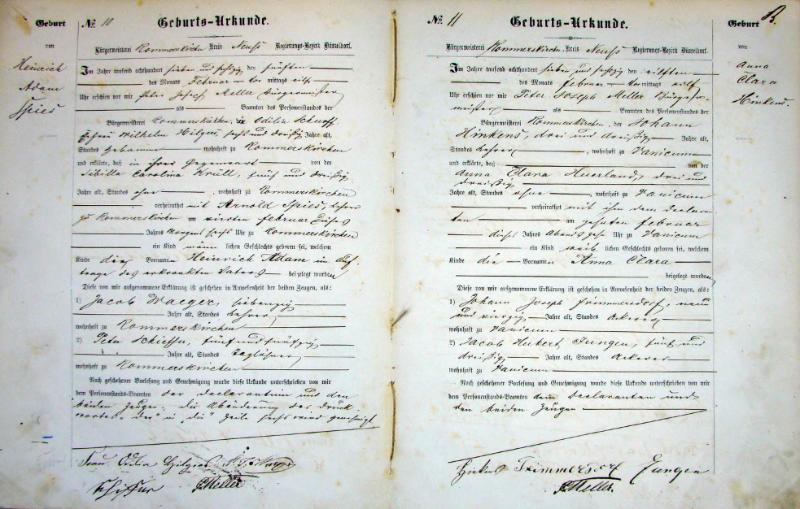 Geburt
von
Heinrich
Adam
Spies
No. 10 Geburts-Urkunde.
Bürgermeisterei Rommerskirchen Kreis Neuss Regierungs-Bezirk Düsseldorf.
Im Jahre tausend achthundert sieben und sechszig, den fünften
des Monats Februar mittags
Uhr erschien vor mir Peter Joseph Meller Bürgermeister
als Beamten des Personenstandes der
Bürgermeisterei Rommerskirchen, die Odilia
Wilhelm Hilgers, sechs und dreißig Jahre alt,
Standes Hebamme, wohnhaft zu Rommerskirchen
und erklärte, daß in ihrer Gegenwart von der
Sibilla Carolina Krüll, fünf und dreißig
Jahre alt, Standes ohne, wohnhaft zu Rommerskirchen
verheirathet mit Arnold Spies,
zu Rommerskirchen am vierten Februar dieses
Jahres Morgens sechs Uhr zu Rommerskirchen
ein Kind männlichen Geschlechts geboren sei, welchem
Kinde die Vornamen Heinrich Adam in Auf-
trage des erkrankten Vaters beigelegt wurden
Diese von mir aufgenommene Erklärung ist geschehen in Anwesenheit der beiden Zeugen, als:
1) Jacob Waeger, siebenzig
Jahre alt, Standes
wohnhaft zu Rommerskirchen
2) Peter Schiffer, fünf und fünfzig
Jahre alt, Standes Taglöhner
wohnhaft zu Rommerskirchen
Nach geschehener Vorlesung und Genehmigung wurde diese Urkunde unterschrieben von mir
dem Personenstands-Beamten der Declarantin und den
beiden Zeugen. Die Abänderung des Druck-
wortes "der" in "die" Zeile sechs wird genehmigt
Frau Odilia Hilgers
Schiffer PMeller
No. 11 Geburts-Urkunde.
Bürgermeisterei Rommerskirchen, Kreis Neuss Regierungs-Bezirk Düsseldorf.
Im Jahre tausend achthundert sieben und sechszig, den elften
des Monats Februar Vormittags elf
Uhr erschien vor mir Peter Joseph Meller Bürger-
meister als Beamten des Personenstandes der
Bürgermeisterei Rommerskirchen, der Johann
Hinkens, drei und dreißig Jahre alt,
Standes, wohnhaft zu Vanicum
und erklärte, daß von der
Anna Clara Heuerland, drei und
dreißig
Jahre alt, Standes ohne, wohnhaft zu Vanicum
verheirathet mit ihm dem Declaran-
ten am zehnten Februar
dieses Jahres Abends Uhr zu Vanicum
ein Kind weiblichen Geschlechts geboren sei, welchem
Kinde die Vornamen Anna Clara
beigelegt wurden
Diese von mir aufgenommene Erklärung ist geschehen in Anwesenheit der beiden Zeugen, als:
1) Johann Joseph Trimmersdorf, neun
und vierzig Jahre alt, Standes Ackerer
wohnhaft zu Vanicum
2) Jacob Hubert Jungen, fünf und
dreißig Jahre alt, Standes Ackerer
wohnhaft zu Vanicum
Nach geschehener Vorlesung und Genehmigung wurde diese Urkunde unterschrieben von mir
dem Personenstands-Beamten dem Declaranten und
den beiden Zeugen
Hinkens Jungen
PMeller.
Geburt
von
Anna
Clara
Hinkens.